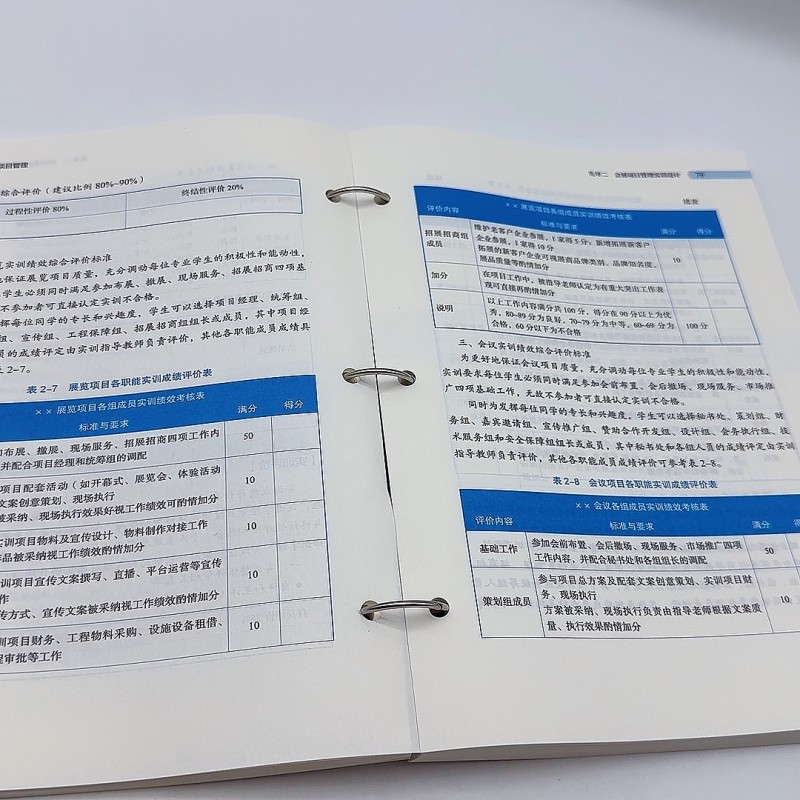 项目管理
综合评价（建议比例 80%~90%）
过程性评价 80%
终结性评价 20%
览实训绩效综合评价标准
地保证展览项目质量，充分调动每位专业学生的积极性和能动性，
学生必须同时满足参加布展、撤展、现场服务、招展招商四项基
不参加者可直接认定实训不合格。
挥每位同学的专长和兴趣度，学生可以选择项目经理、统筹组、
组、宣传组、工程保障组、招展招商组组长或成员，其中项目经
员的成绩评定由实训指导教师负责评价，其他各职能成员成绩具
2-7。
表 2-7 展览项目各职能实训成绩评价表
×× 展览项目各组成员实训绩效考核表
标准与要求
满分
得分
加布展、撤展、现场服务、招展招商四项工作内
并配合项目经理和统筹组的调配
50
项目配套活动（如开幕式、展览会、体验活动
文案创意策划、现场执行
被采纳、现场执行效果好视工作绩效可酌情加分
10
实训项目物料及宣传设计、物料制作对接工作
作品被采纳视工作绩效酌情加分
10
训项目宣传文案撰写、直播、平台运营等宣传
作
传方式、宣传文案被采纳视工作绩效酌情加分
10
训项目财务、工程物料采购、设施设备租借、
程审批等工作
10
会展项目管理实训设计
79
续表
评价内容
×× 展览项目各组成员实训绩效考核表
标准与要求
满分
得分
招展招商组
成员
维护老客户企业参展，1 家得 5 分；新增拓展新客户
企业参展，1 家得 10 分
拓展的新客户企业可视展商品牌类别、品牌知名度、
展品质量等酌情加分
10
加分
在项目工作中，被指导老师认定为有重大突出工作表
现可直接再酌情加分
说明
以上工作内容满分共 100 分，得分在 90 分以上为优
秀，80~89 分为良好，70~79 分为中等，60~69 分为
合格，60 分以下为不合格
100 分
三、会议实训绩效综合评价标准
为更好地保证会议项目质量，充分调动每位专业学生的积极性和能动性，
实训要求每位学生必须同时满足参加会前布置、会后撤场、现场服务、市场推
广四项基础工作，无故不参加者可直接认定实训不合格。
同时为发挥每位同学的专长和兴趣度，学生可以选择秘书处、策划组、财
务组、嘉宾邀请组、宣传推广组、赞助合作开发组、设计组、会务执行组、技
术服务组和安全保障组组长或成员，其中秘书处和各组人员的成绩评定由实训
指导教师负责评价，其他各职能成员成绩评价可参考表 2-8。
表 2-8 会议项目各职能实训成绩评价表
评价内容
×× 会议各组成员实训绩效考核表
标准与要求
满分
得
基础工作
参加会前布置、会后撤场、现场服务、市场推广四项
工作内容，并配合秘书处和各组组长的调配
50
策划组成员
参与项目总方案及配套文案创意策划、实训项目财
务、现场执行
方案被采纳、现场执行负责由指导老师根据文案质
量、执行效果酌情加分
10